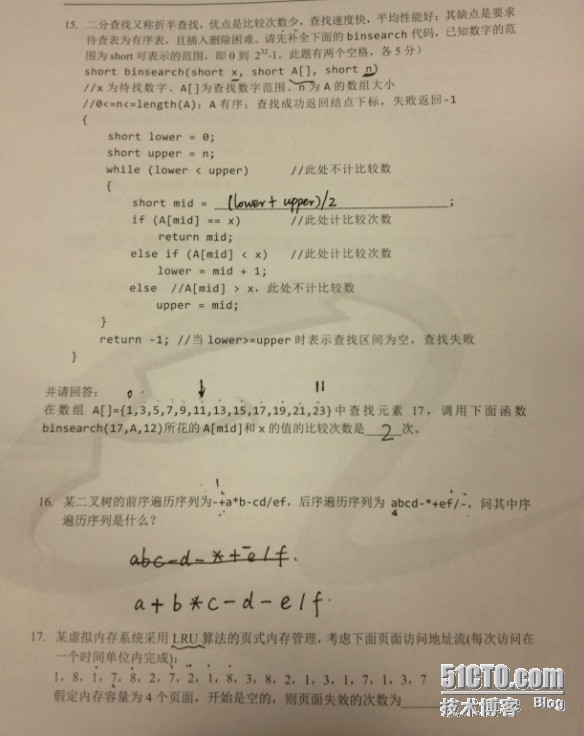 15. 二分查找又称折半查找，优点是比较次数少，查找速度快，平均性能好；其缺点是要求
待查表为有序表，且插入删除困难。请先补全下面的 binsearch 代码，已知数字的范
围为 short 可表示的范围，即 0 到 2^32-1。此题有两个空格，各 5 分）
short binsearch(short x, short A[], short n)
//x 为待找数字、A[]为查找数字范围、n 为 A 的数组大小
//0<=n<=length(A)；A 有序；查找成功返回结点下标，失败返回-1
{
short lower = 0;
short upper = n;
while (lower < upper) //此处不计比较数
{
short mid = (lower+ upper)/2 ;
if (A[mid] == x) //此处计比较次数
return mid;
else if (A[mid] < x) //此处计比较次数
lower = mid + 1;
else //A[mid] > x，此处不计比较数
upper = mid;
}
return -1; //当 lower>=upper 时表示查找区间为空，查找失败
}
并请回答： 0 11
在数组 A[]={1,3,5,7,9,11,13,15,17,19,21,23}中查找元素 17，调用下面函数
binsearch(17,A,12)所花的 A[mid]和 x 的值的比较次数是 2 次。
16. 某二叉树的前序遍历序列为-+a*b-cd/ef，后序遍历序列为 abcd-*+ef/-，问其中序
遍历序列是什么？
abc-d-*+-e/f.
a+b*c-d-e/f.
17. 某虚拟内存系统采用 LRU 算法的页式内存管理，考虑下面页面访问地址流(每次访问在
一个时间单位内完成)：
1，8，1，7，8，2，7，2，1，8，3，8，2，1，3，1，7，1，3，7
假定内存容量为 4 个页面，开始是空的，则页面失效的次数为
51CTO.com
技术博客 Blog